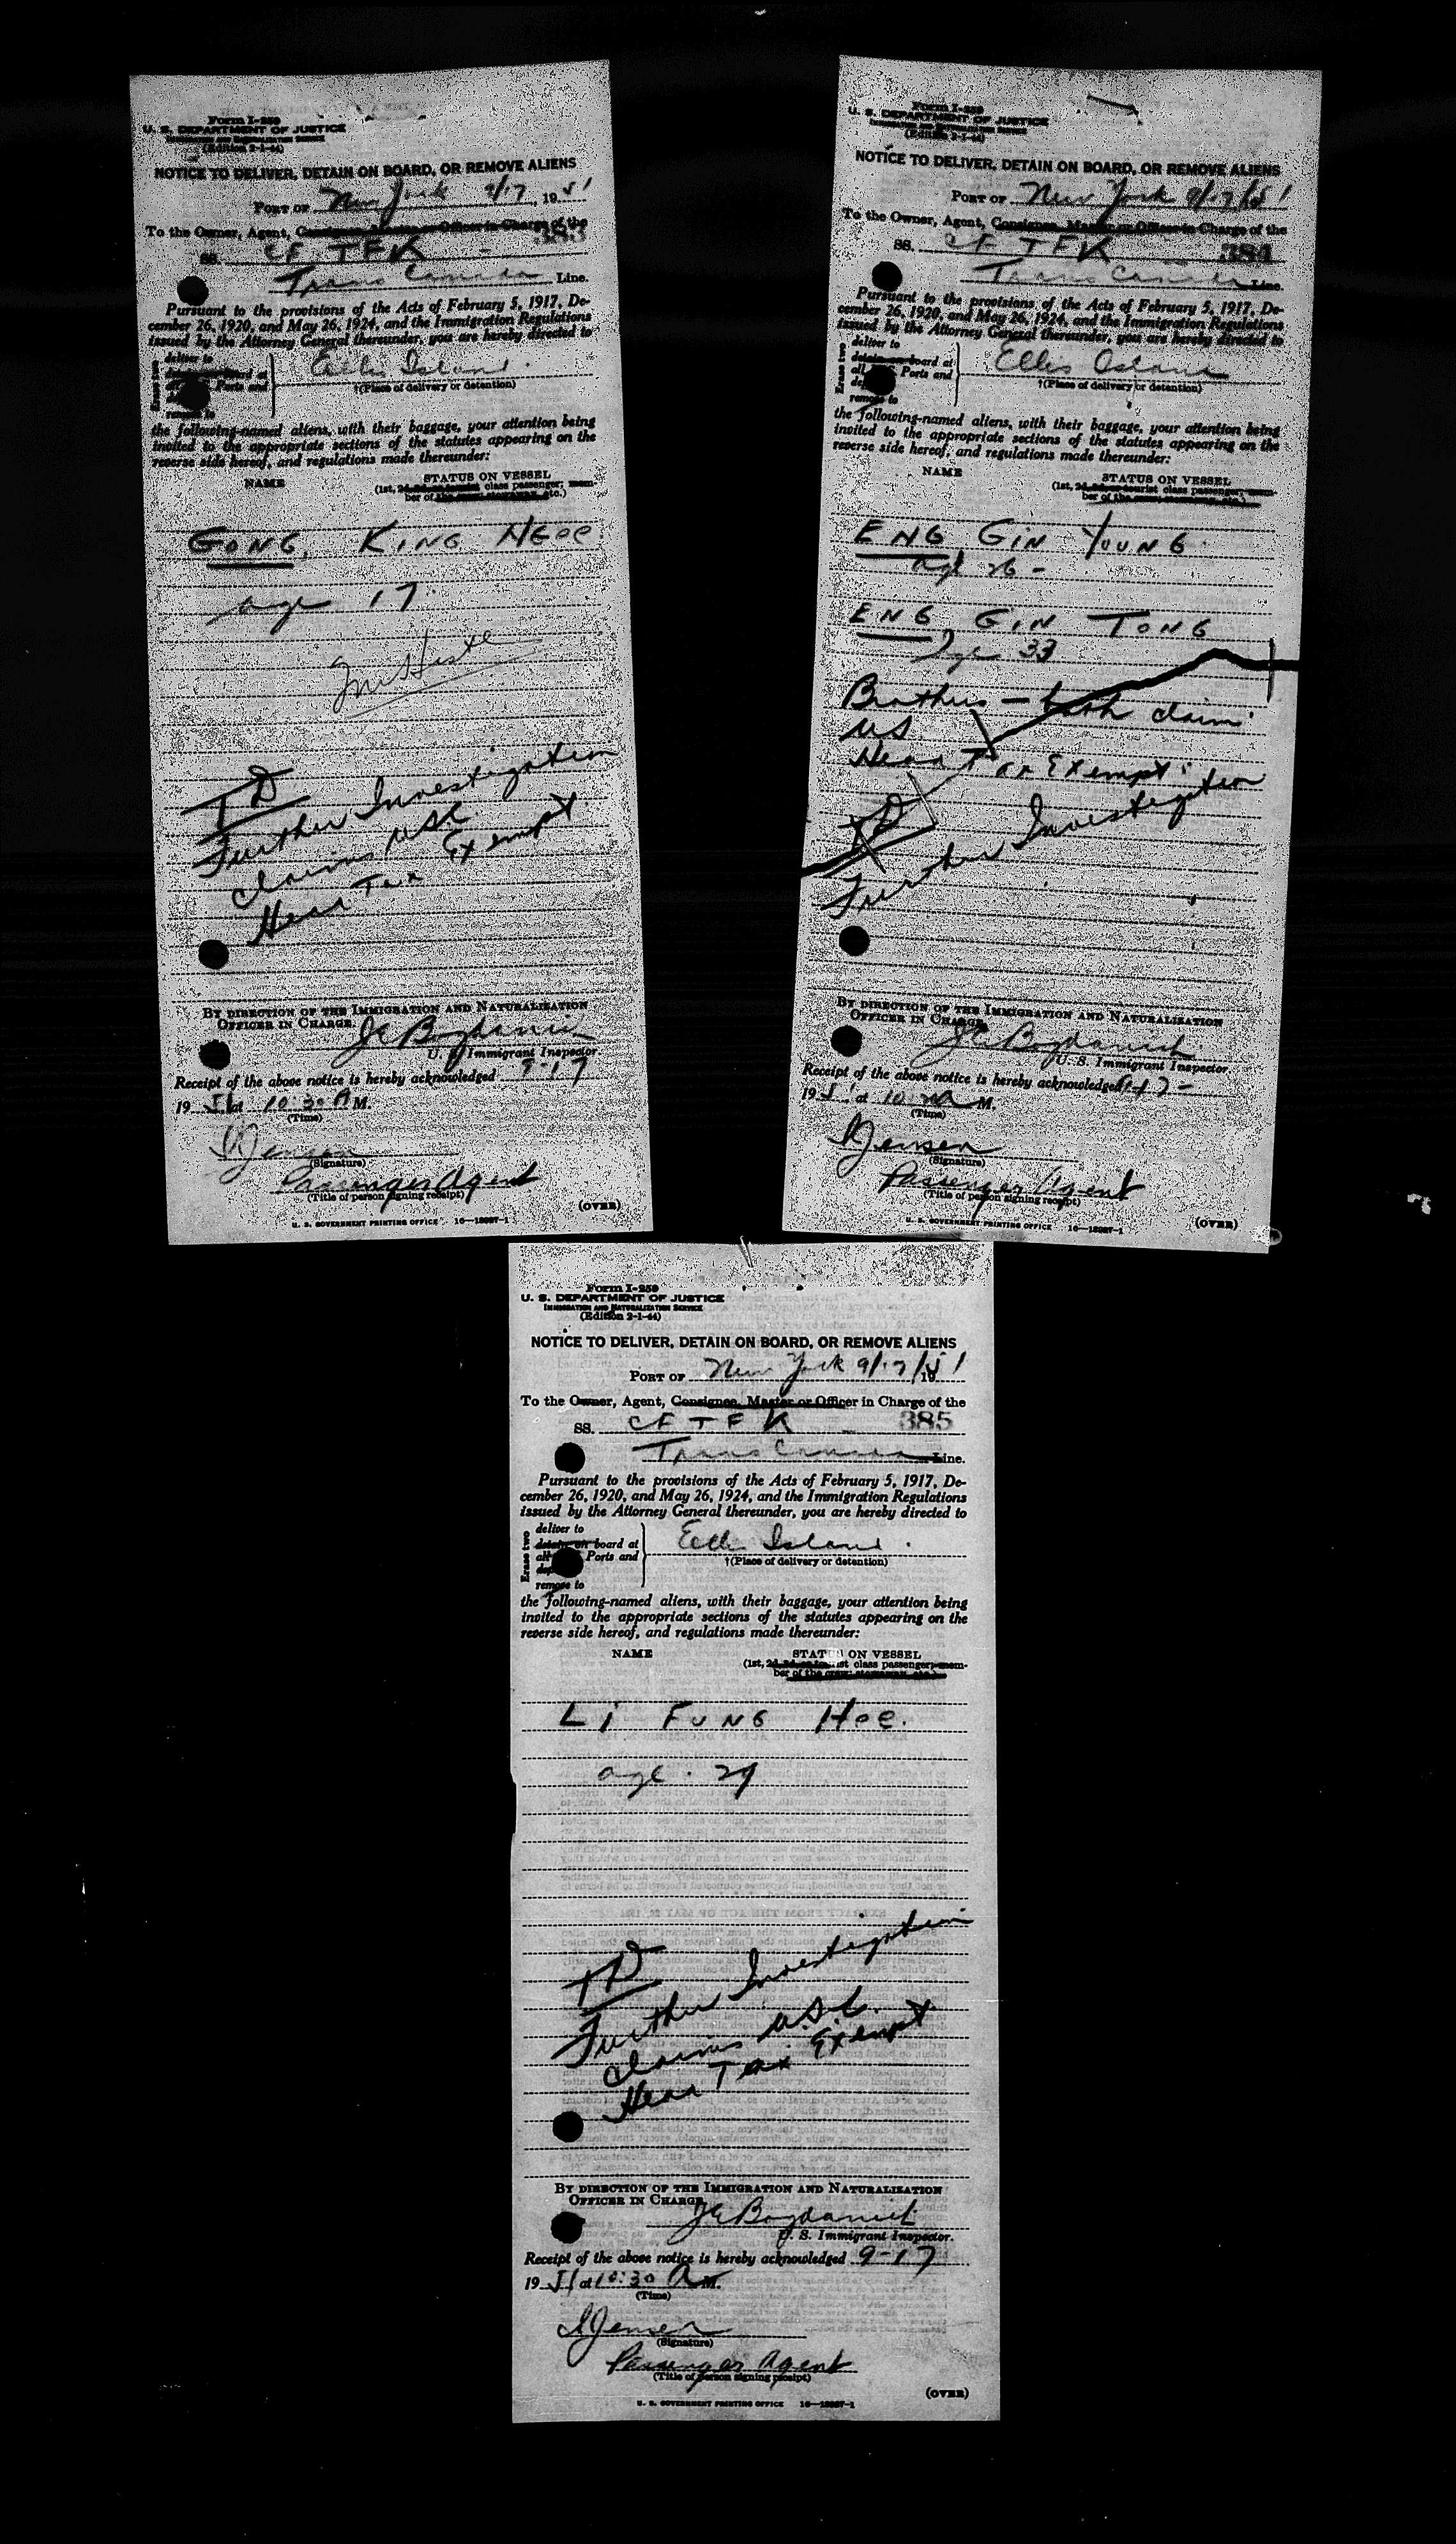 Form I-259
U. S. DEPARTMENT OF JUSTICE
IMMIGRATION AND NATURALIZATION SERVICE
(Edition 2-1-44)
NOTICE TO DELIVER, DETAIN ON BOARD, OR REMOVE ALIENS
PORT OF New York 9/17, 1951
To the Owner, Agent, Consignee, Master or Officer in Charge of the
SS. CF TFK - 383
Trans Canada Line.
Pursuant to the provisions of the Acts of February 5, 1917, De-
cember 26, 1920, and May 26, 1924, and the Immigration Regulations
issued by the Attorney General thereunder, you are hereby directed to
Erase two
deliver to
board at
Ports and
remove to
Ellis Island.
†(Place of delivery or detention)
the following-named aliens, with their baggage, your attention being
invited to the appropriate sections of the statutes appearing on the
reverse side hereof, and regulations made thereunder:
NAME STATUS ON VESSEL
(1st, 2d, or tourist class passenger; mem-
ber of the crew, stowaway, etc.)
GONG, KING NGOE
age 17
TD
Further Investigation
Claims USC
Head Tax Exempt
BY DIRECTION OF THE IMMIGRATION AND NATURALIZATION
OFFICER IN CHARGE.
JE Bogdanich
U. S. Immigrant Inspector.
Receipt of the above notice is hereby acknowledged 9-17
1951 at 10:30 A M.
(Time)
Jensen
(Signature)
Passenger Agent
(Title of person signing receipt)
(OVER)
U. S. GOVERNMENT PRINTING OFFICE 16—18987-1
Form I-259
U. S. DEPARTMENT OF JUSTICE
IMMIGRATION AND NATURALIZATION SERVICE
(Edition 2-1-44)
NOTICE TO DELIVER, DETAIN ON BOARD, OR REMOVE ALIENS
PORT OF New York 9/17/51
To the Owner, Agent, Consignee, Master or Officer in Charge of the
SS. CF TFK 384
Trans Canada Line.
Pursuant to the provisions of the Acts of February 5, 1917, De-
cember 26, 1920, and May 26, 1924, and the Immigration Regulations
issued by the Attorney General thereunder, you are hereby directed to
Erase two
deliver to
detain on board at
all Ports and
remove to
Ellis Island
†(Place of delivery or detention)
the following-named aliens, with their baggage, your attention being
invited to the appropriate sections of the statutes appearing on the
reverse side hereof, and regulations made thereunder:
NAME STATUS ON VESSEL
(1st, 2d, or tourist class passenger; mem-
ber of the crew, stowaway, etc.)
ENG GIN YOUNG
age 26 -
ENG GIN TONG
Age 33
Brothers - both claim
US
Head Tax Exempt
TD
Further Investigation
BY DIRECTION OF THE IMMIGRATION AND NATURALIZATION
OFFICER IN CHARGE.
JE Bogdanich
U. S. Immigrant Inspector.
Receipt of the above notice is hereby acknowledged 9-17-
1951 at 10:30 A M.
(Time)
Jensen
(Signature)
Passenger Agent
(Title of person signing receipt)
(OVER)
U. S. GOVERNMENT PRINTING OFFICE 16—18987-1
Form I-259
U. S. DEPARTMENT OF JUSTICE
IMMIGRATION AND NATURALIZATION SERVICE
(Edition 2-1-44)
NOTICE TO DELIVER, DETAIN ON BOARD, OR REMOVE ALIENS
PORT OF New York 9/17/1951
To the Owner, Agent, Consignee, Master or Officer in Charge of the
SS. CF TFK - 385
Trans Canada Line.
Pursuant to the provisions of the Acts of February 5, 1917, De-
cember 26, 1920, and May 26, 1924, and the Immigration Regulations
issued by the Attorney General thereunder, you are hereby directed to
Erase two
deliver to
detain on board at
all Ports and
remove to
Ellis Island.
†(Place of delivery or detention)
the following-named aliens, with their baggage, your attention being
invited to the appropriate sections of the statutes appearing on the
reverse side hereof, and regulations made thereunder:
NAME STATUS ON VESSEL
(1st, 2d, or tourist class passenger; mem-
ber of the crew, stowaway, etc.)
LI FUNG Hoe.
age. 29
TD
Further Investigation
Claims U.S.C.
Head Tax Exempt
BY DIRECTION OF THE IMMIGRATION AND NATURALIZATION
OFFICER IN CHARGE.
JE Bogdanich
U. S. Immigrant Inspector.
Receipt of the above notice is hereby acknowledged 9-17
1951 at 10:30 A M.
(Time)
Jensen
(Signature)
Passenger Agent
(Title of person signing receipt)
(OVER)
U. S. GOVERNMENT PRINTING OFFICE 16—18987-1